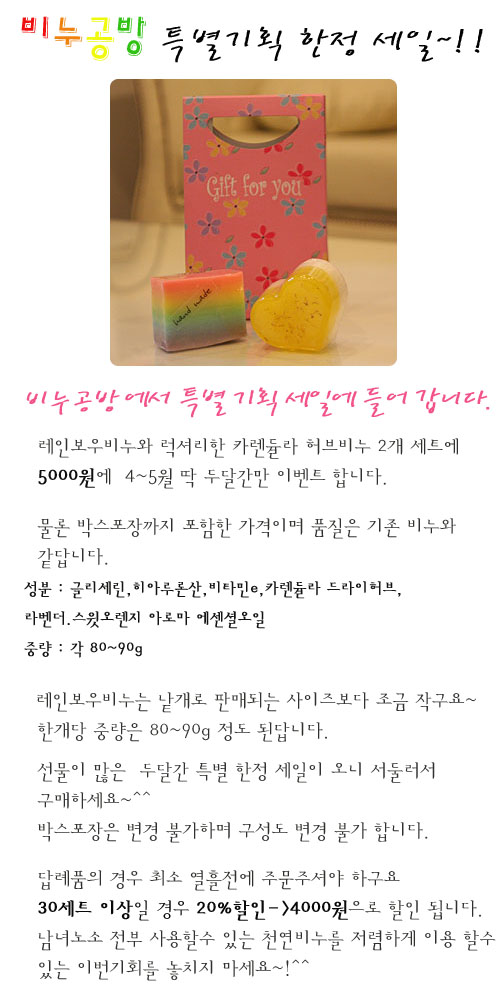 비누공방 특별기획 한정 세일~!!
Gift for you
hand made
비누공방에서 특별기획 세일에 들어 갑니다.
레인보우비누와 럭셔리한 카렌듈라 허브비누 2개 세트에
5000원에 4~5월 딱 두달간만 이벤트 합니다.
물론 박스포장까지 포함한 가격이며 품질은 기존 비누와
같답니다.
성분 : 글리세린,히아루론산,비타민e,카렌듈라 드라이허브,
라벤더.스윗오렌지 아로마 에센셜오일
중량 : 각 80~90g
레인보우비누는 낱개로 판매되는 사이즈보다 조금 작구요~
한개당 중량은 80~90g 정도 된답니다.
선물이 많은 두달간 특별 한정 세일이 오니 서둘러서
구매하세요~^^
박스포장은 변경 불가하며 구성도 변경 불가 합니다.
답례품의 경우 최소 열흘전에 주문주셔야 하구요
30세트 이상일 경우 20%할인->4000원으로 할인 됩니다.
남녀노소 전부 사용할수 있는 천연비누를 저렴하게 이용 할수
있는 이번기회를 놓치지 마세요~!^^